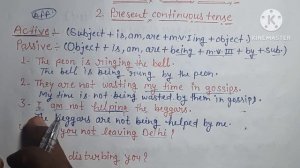 2 Present continuous tense
Active - (Subject + is, am, are + mv I ing + object)
Passive - (Object + is, am, are + being + m.v. III + by + Sub.
1- The peon is ringing the bell.
The bell is being rung by the peon.
2- They are not wasting my time in gossips.
My time is not being wasted by them in gossips.
3- I am not helping the beggars.
The beggars are not being helped by me.
you not leaving Delhi?
disturbing you?
KINEMASTER